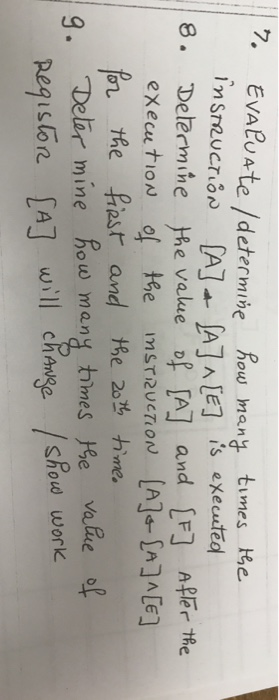 7. Evaluate/determine how many times the
instruction [A] ← [A] ∧ [E] is executed
8. Determine the value of [A] and [F] After the
execution of the instruction [A] ← [A] ∧ [E]
for the first and the 20th time.
9. Determine how many times the value of
Register [A] will change / show work